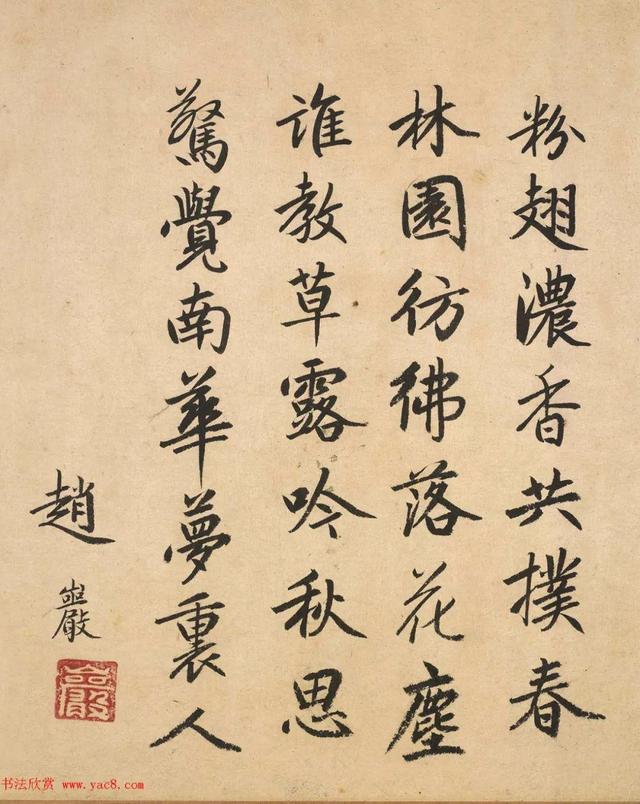 粉翅濃香共撲春
林園彷彿落花塵
誰教草露吟秋思
驚覺南華夢裏人
趙巖
书法欣赏 www.yac8.com